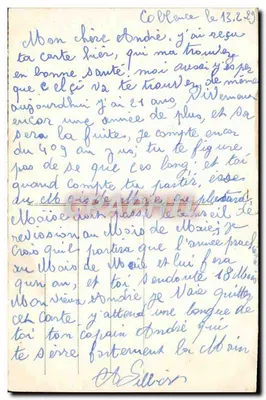 Coblence le 13.2.29
Mon chère André, j'ai reçu
ta carte hier, qui ma trouver
en bonne santé, moi aussi j'espes
que celçi va te trouver de même
aujourdhui j'ai 21 ans, Vivemen
encor une année de plus, et sa
sera la fuites, je compte encor
du 409 au jus, tu te figure
pas de se que ces long, et toi
quand compte tu partir, esse
du plustard
Moi se suit passé le conseil de
revission au Mois de Mai, je
Crois qu'il partira que l'année proch
au Mois de Mai et lui fera
qun an, et toi sendoute 18 Mois
Mon vieux André je Vaie quitter
cet Carte, j'attend une longue de
toi ton copain André qui
te serre fortement la Main